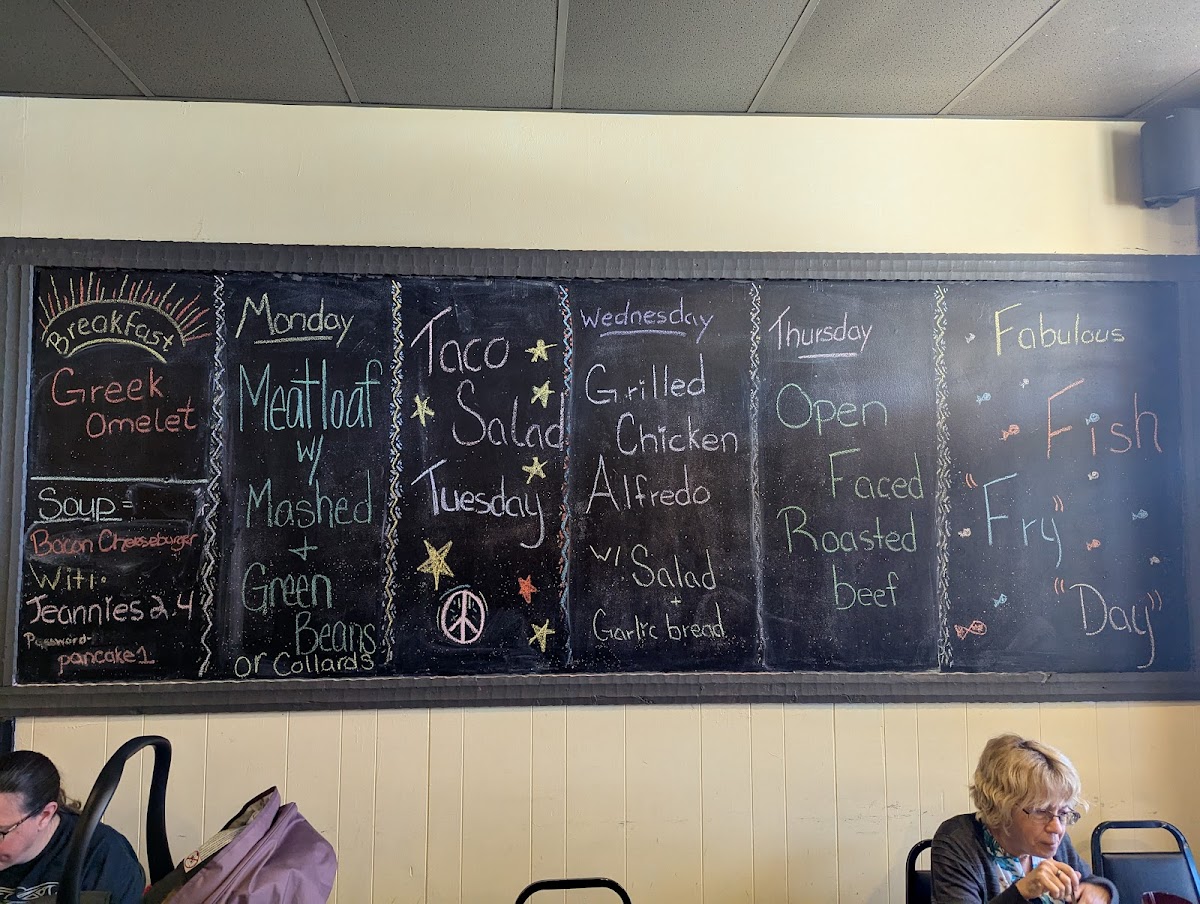 Breakfast
Greek
Omelet
Soup=
Bacon Cheeseburger
Wifi-
Jeannies 2.4
Password-
pancake1
Monday
Meatloaf
w/
Mashed
+
Green
Beans
or Collards
Taco
Salad
Tuesday
Wednesday
Grilled
Chicken
Alfredo
w/ Salad
+
Garlic bread
Thursday
Open
Faced
Roasted
beef
Fabulous
Fish
"Fry"
"Day"